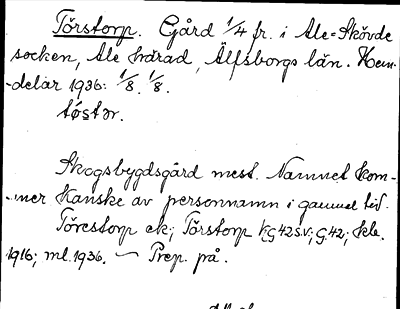 Törstorp. Gård 1/4 fr. i Ale-Skövde
socken, Ale härad, Älfsborgs län. Hem-
-delar 1936: 1/8. 1/8.
tøstər.
Skogsbygdsgård mest. Namnet kom-
-mer kanske av personnamn i gammel tid.
Törestorp ek; Törstorp KG42 s.v.; G.42; skb.
1916; ml. 1936. — Prep. på.